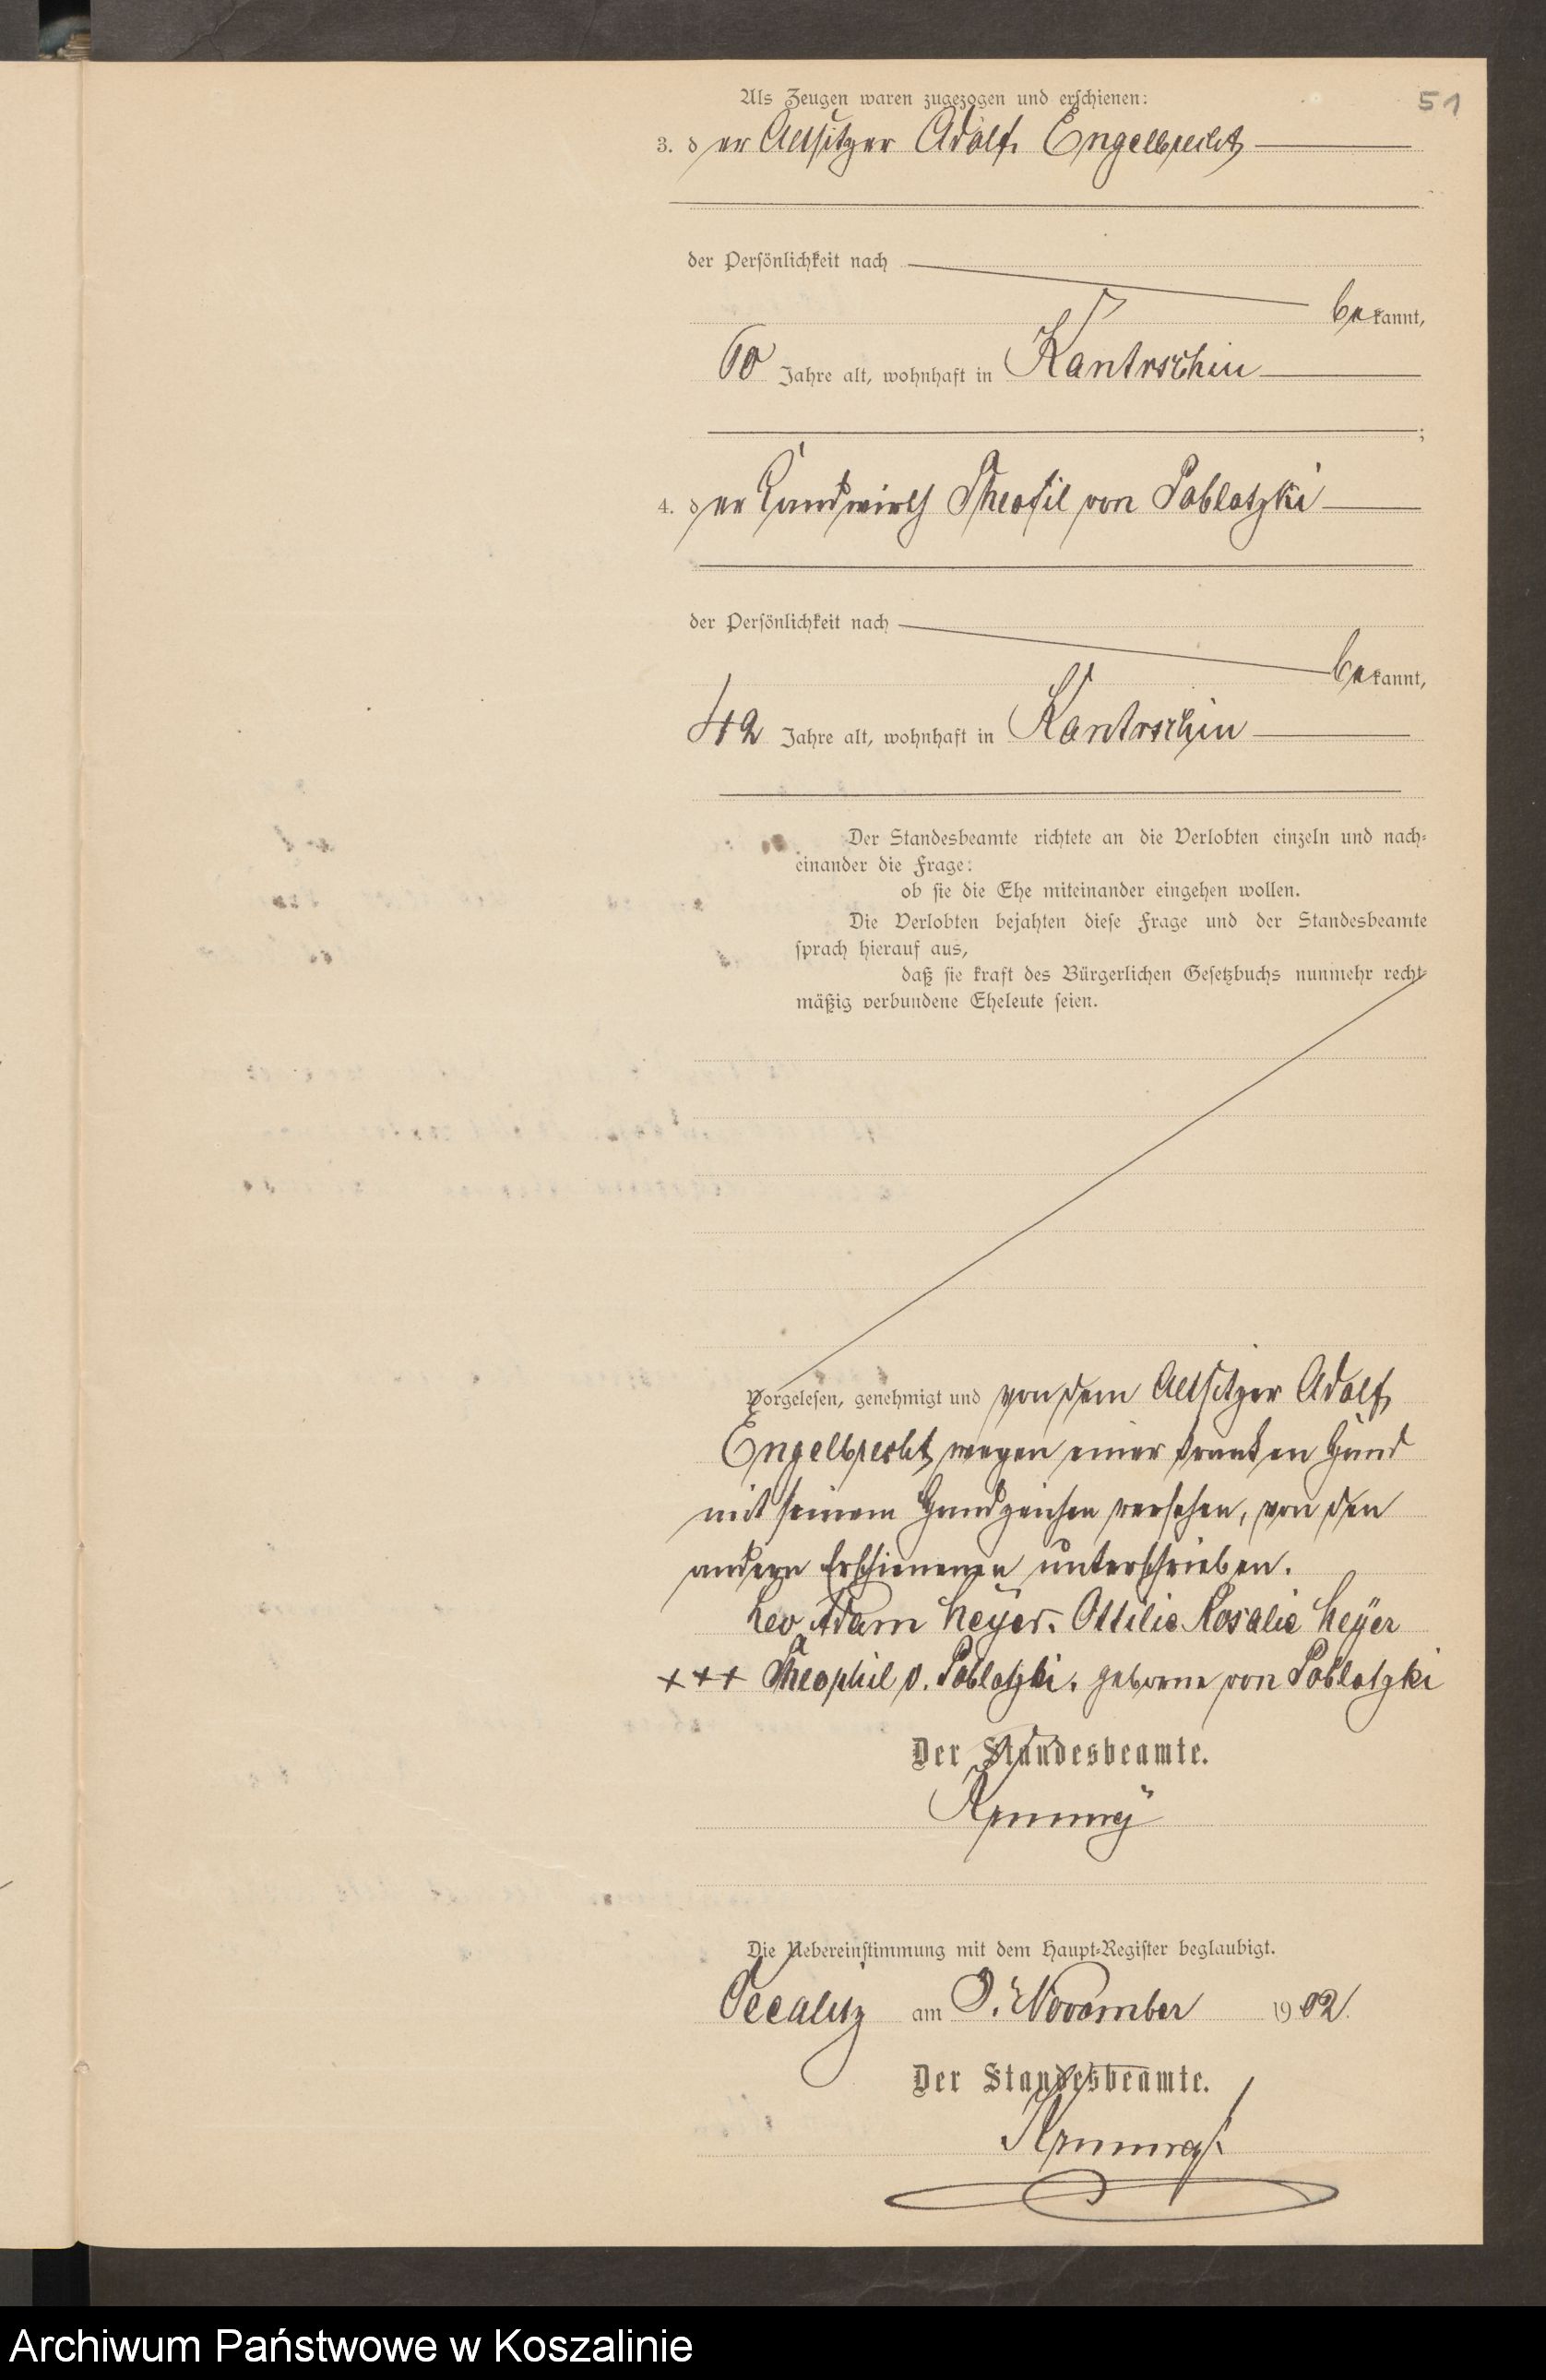 51
Als Zeugen waren zugezogen und erschienen:
3. der Altsitzer Adolf Engelbrecht
der Persönlichkeit nach
bekannt,
60 Jahre alt, wohnhaft in Kantrschin
;
4. der Landwirth Theofil von Pablotzki
der Persönlichkeit nach
bekannt,
42 Jahre alt, wohnhaft in Kantrschin
Der Standesbeamte richtete an die Verlobten einzeln und nach-
einander die Frage:
ob sie die Ehe miteinander eingehen wollen.
Die Verlobten bejahten diese Frage und der Standesbeamte
sprach hierauf aus,
daß sie kraft des Bürgerlichen Gesetzbuchs nunmehr recht-
mäßig verbundene Eheleute seien.
Vorgelesen, genehmigt und von dem Altsitzer Adolf
Engelbrecht wegen einer kranken Hand
mit seinem Handzeichen versehen, von den
andern Erschienenen unterschrieben.
Leo Adam Heyer. Ottilie Rosalie Heyer
+++ Theophil v. Pablotzki. geborene von Pablotzki
Der Standesbeamte.
Die Uebereinstimmung mit dem Haupt-Register beglaubigt.
am November 1902.
Der Standesbeamte.
Archiwum Państwowe w Koszalinie